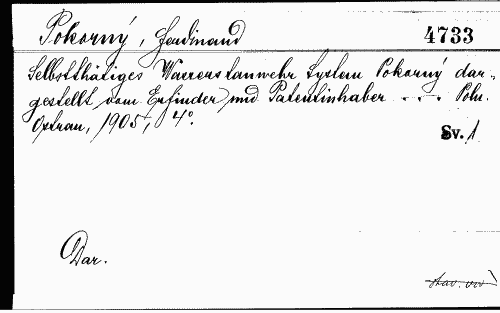 Pokorný, Ferdinand
4733
Selbstthätiges Wasserstauwehr System Pokorný dar-
gestellt vom Erfinder und Patentinhaber . . . Poln.
Ostrau, 1905, 4°.
Sv. 1
Dar.